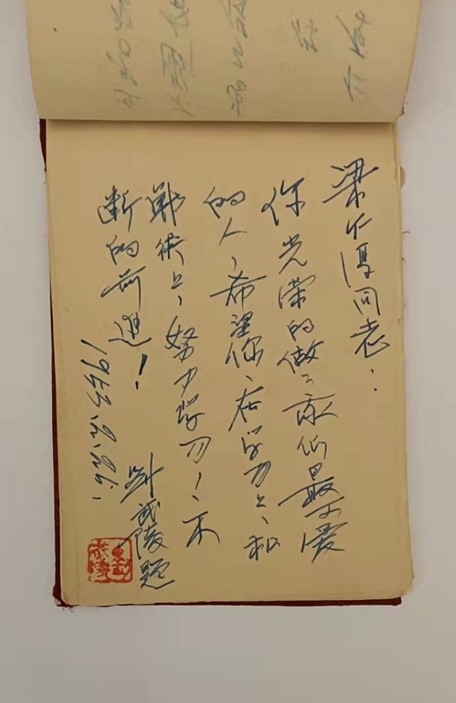 梁仁厚同志:
你光荣的做了我们最可爱
的人、希望你、在学习上、和
战术上、努力学习!、不
断的前进!
刘武陵题
1953.2.26.